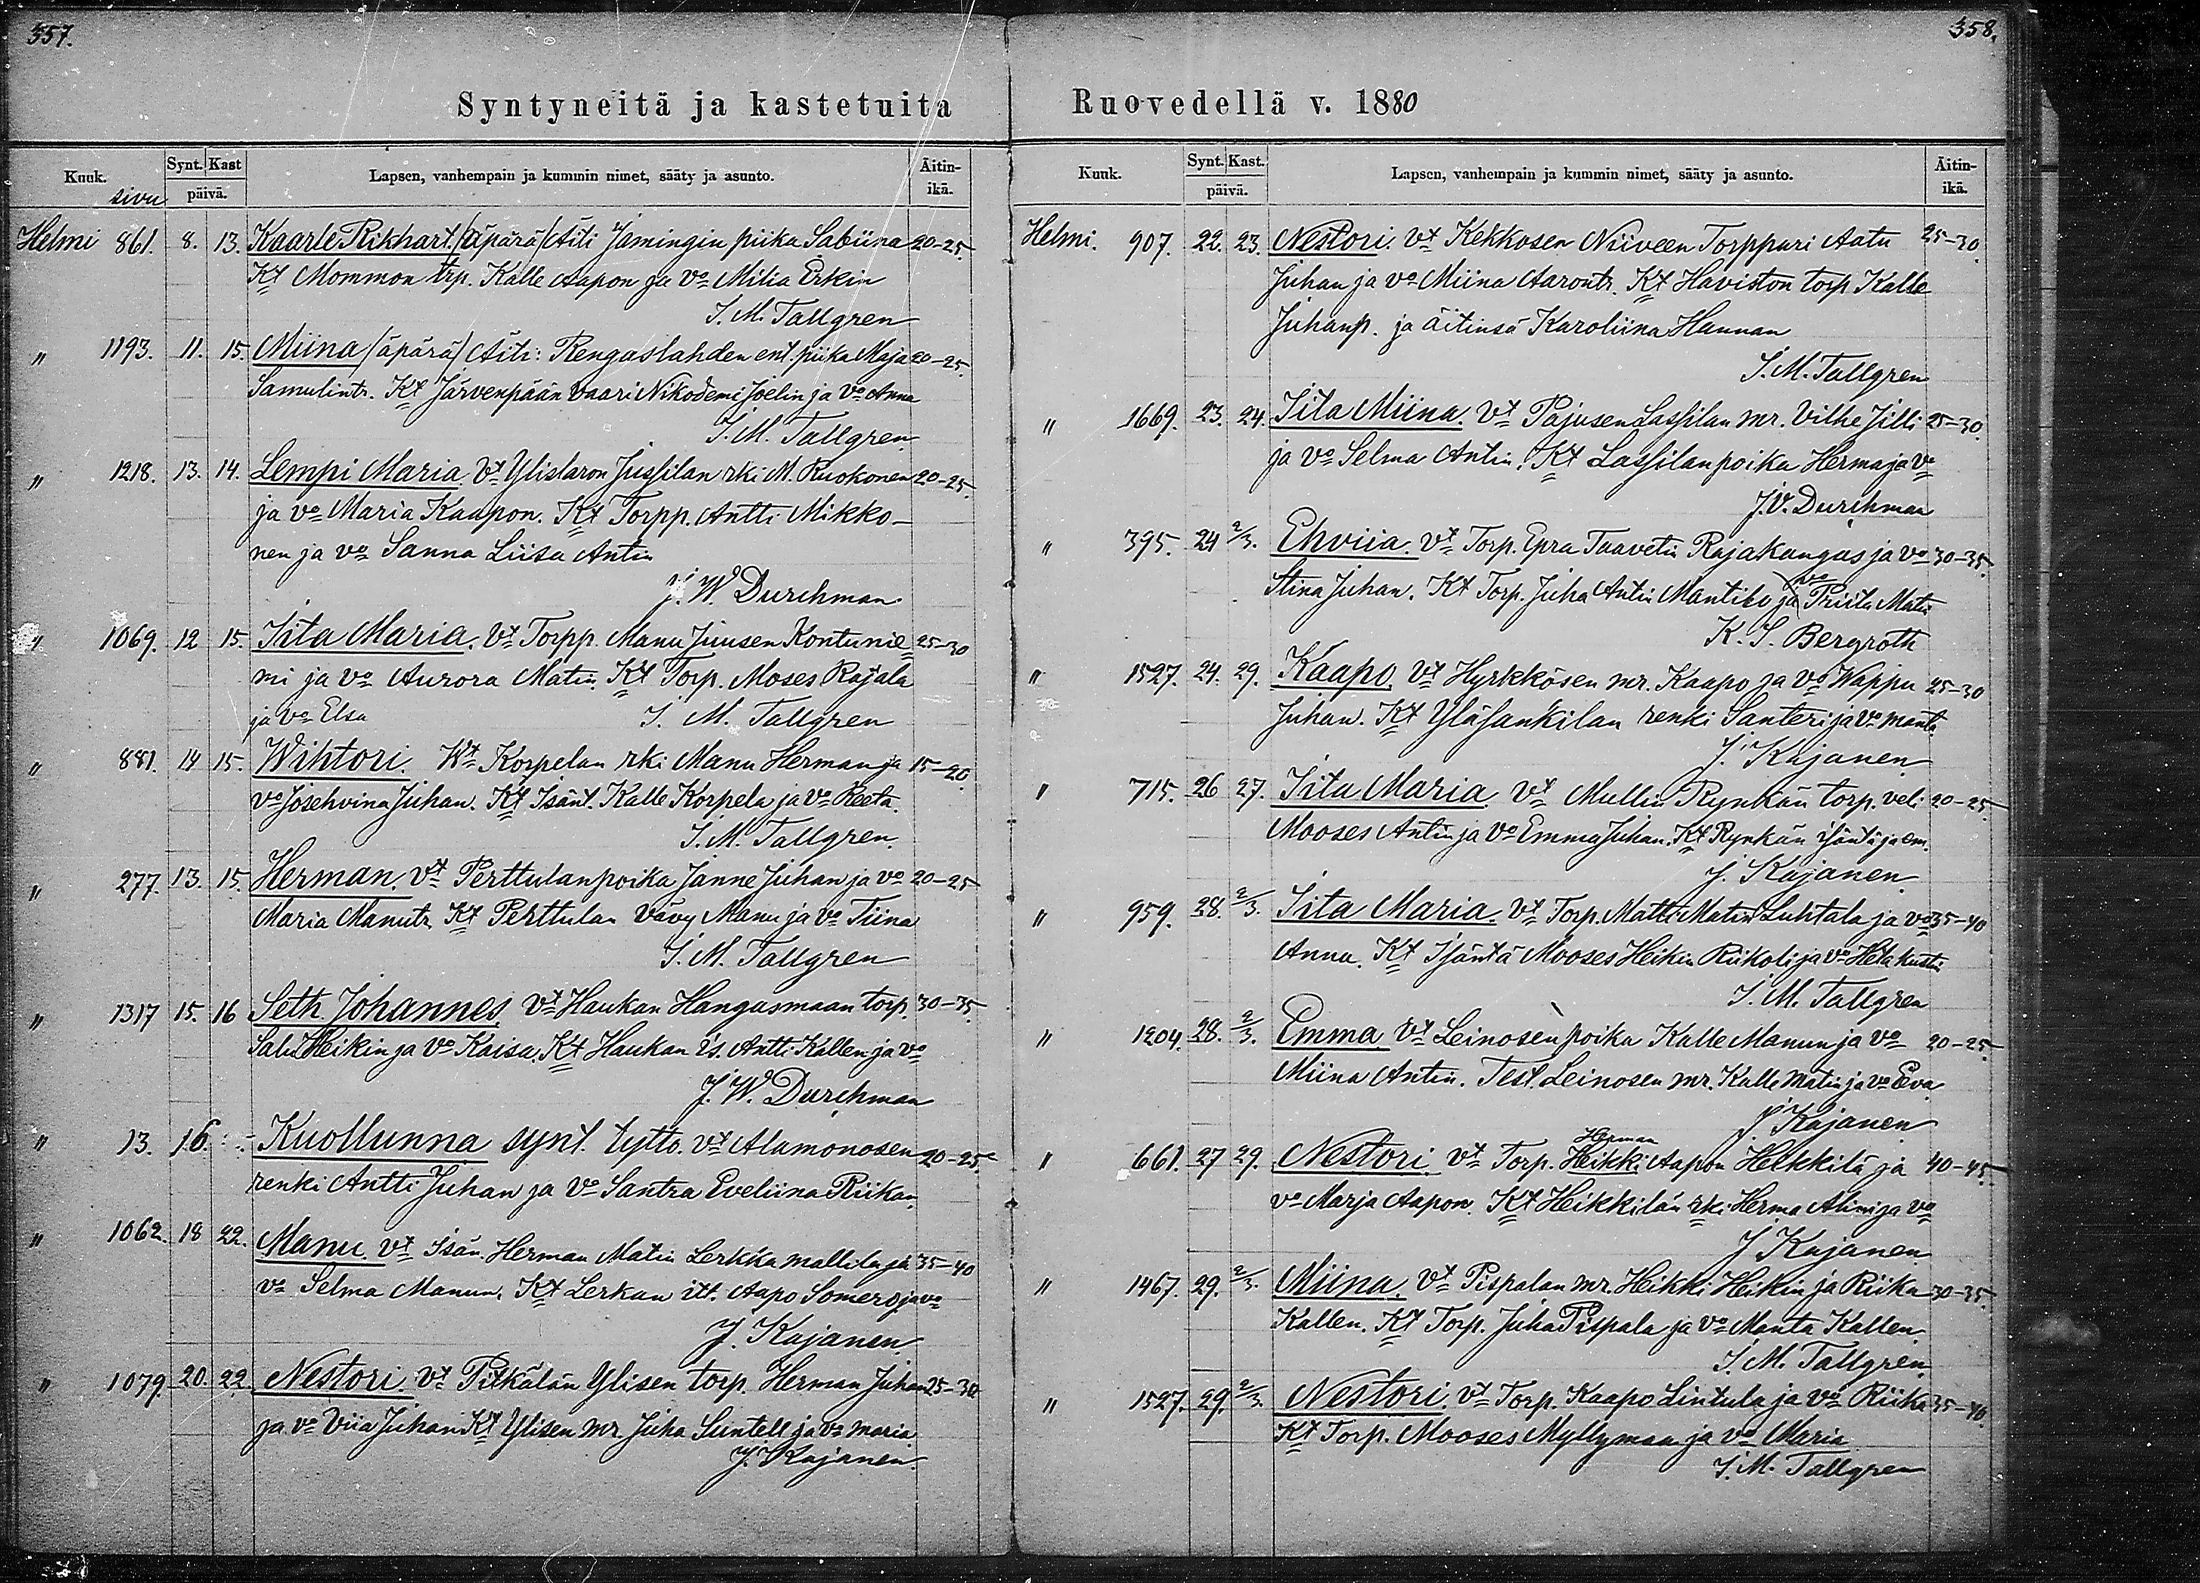 357.
Syntyneitä ja kastetuita
Kuuk. sivu Synt. Kast päivä. Lapsen, vanhempain ja kummin nimet, sääty ja asunto. Äitin-ikä.
Helmi 861. 8. 13. Kaarle Rikhart. (äpärä) Äiti Jamingin piika Sabiina 20-25.
Kt Mommon trp. Kalle Aapon ja vo Milia Erkin
I. M. Tallgren
" 1193. 11. 15. Miina (äpärä) Äiti: Rengaslahden ent. piika Maja 20-25.
Samulintr. Kt Järvenpään vaari Nikodemi Joelin ja vo Anna
I. M. Tallgren
" 1218. 13. 14. Lempi Maria Vt Ylistaron Jussilan rki M. Ruokonen 20-25.
ja vo Maria Kaapon. Kt Torpp. Antti Mikko-
nen ja vo Sanna Liisa Antin
J. W. Durchman
" 1069. 12 15. Iita Maria. Vt Torpp. Manu Juusen Kontunie- 25-30
mi ja vo Aurora Matin. Kt Torp. Moses Rajala
ja vo Elsa I. M. Tallgren
" 881. 14 15. Wihtori. Wt Korpelan rki Manu Herman ja 15-20.
vo Josehvina Juhan. Kt Isänt. Kalle Korpela ja vo Reeta.
I. M. Tallgren.
" 277. 13. 15. Herman. Vt Perttulan poika Janne Juhan ja vo 20-25
Maria Manutr. Kt Perttulan vävy Manu ja vo Tiina
I. M. Tallgren
" 1317 15. 16 Seth Johannes. vt Haukan Hangasmaan torp. 30-35.
Salu Heikin ja vo Kaisa. Kt Haukan is. Antti Kallen ja vo
J. W. Durchman
" 13. 16. Kuollunna synt. tyttö. vt Alamonosen 20-25
renki Antti Juhan ja vo Santra Eveliina Riikan.
" 1062. 18 22. Manu. vt Isän. Herman Matin Lerkkamallila ja 35-40
vo Selma Manun. Kt Lerkan itt. Aapo Somero ja vo
J. Kajanen.
" 1079. 20. 22. Nestori. vt Pitkälän Ylisen torp. Herman Juhan 25-30
ja vo Viia Juhan Kt Ylisen mr. Juha Suntell ja vo Maria
J. Kajanen.
358.
Ruovedellä v. 1880
Kuuk. Synt. Kast. päivä. Lapsen, vanhempain ja kummin nimet, sääty ja asunto. Äitin-ikä.
Helmi. 907. 22. 23. Nestori. Vt Kekkosen Niiveen Torppari Aatu 25-30.
Juhan ja vo Miina Aarontr. Kt Haviston torp Kalle
Juhanp. ja äitinsä Karoliina Hannan
I. M. Tallgren
" 1669. 23. 24. Iita Miina. Vt Pajusen Lassilan mr. Vilhe Jilli 25-30.
ja vo Selma Antin. Kt Lassilan poika Herma ja vo
J. V. Durchman
" 395. 24 2/3. Ehviia. vt Torp. Epra Taavetin Rajakangas ja vo 30-35.
Stina Juhan. Kt Torp. Juha Antin Mantila ja vo Priita Matin
K. I. Bergroth
" 1527. 24. 29. Kaapo. Vt Hyrkkösen mr. Kaapo ja vo Wappu 25-30
Juhan. Kt Yläsankilan renki Santeri ja vo Manta
J. Kajanen
" 715. 26 27. Iita Maria. Vt Mullin Rynkän torp. veli 20-25
Mooses Antin ja vo Emma Juhan. Kt Rynkän isäntä ja em.
J. Kajanen.
" 959. 28. 2/3. Iita Maria. vt Torp. Matti Matin Luhtala ja vo 35-40
Anna. Kt Isäntä Mooses Heikin Riikoli ja vo Heta Kustin
I. M. Tallgren
" 1204. 28. 2/3. Emma. Vt Leinosen poika Kalle Manun ja vo 20-25
Miina Antin. Test Leinosen mr. Kalle Matin ja vo Eva.
J. Kajanen
" 661. 27 29. Nestori. vt Torp. Herman Heikki Aapon Heikkilä ja 40-45
vo Marja Aapon. Kt Heikkilän rki Herma Alini ja vo
J Kajanen
" 1467. 29. 2/3. Miina. Vt Pispalan mr. Heikki Heikin ja Riika 30-35.
Kallen. Kt Torp. Juha Pispala ja vo Manta Kallen.
I. M. Tallgren
" 1527. 29. 2/3. Nestori. vt Torp. Kaapo Lintula ja vo Riika 35-40.
Kt Torp. Mooses Myllymaa ja vo Maria
I. M. Tallgren